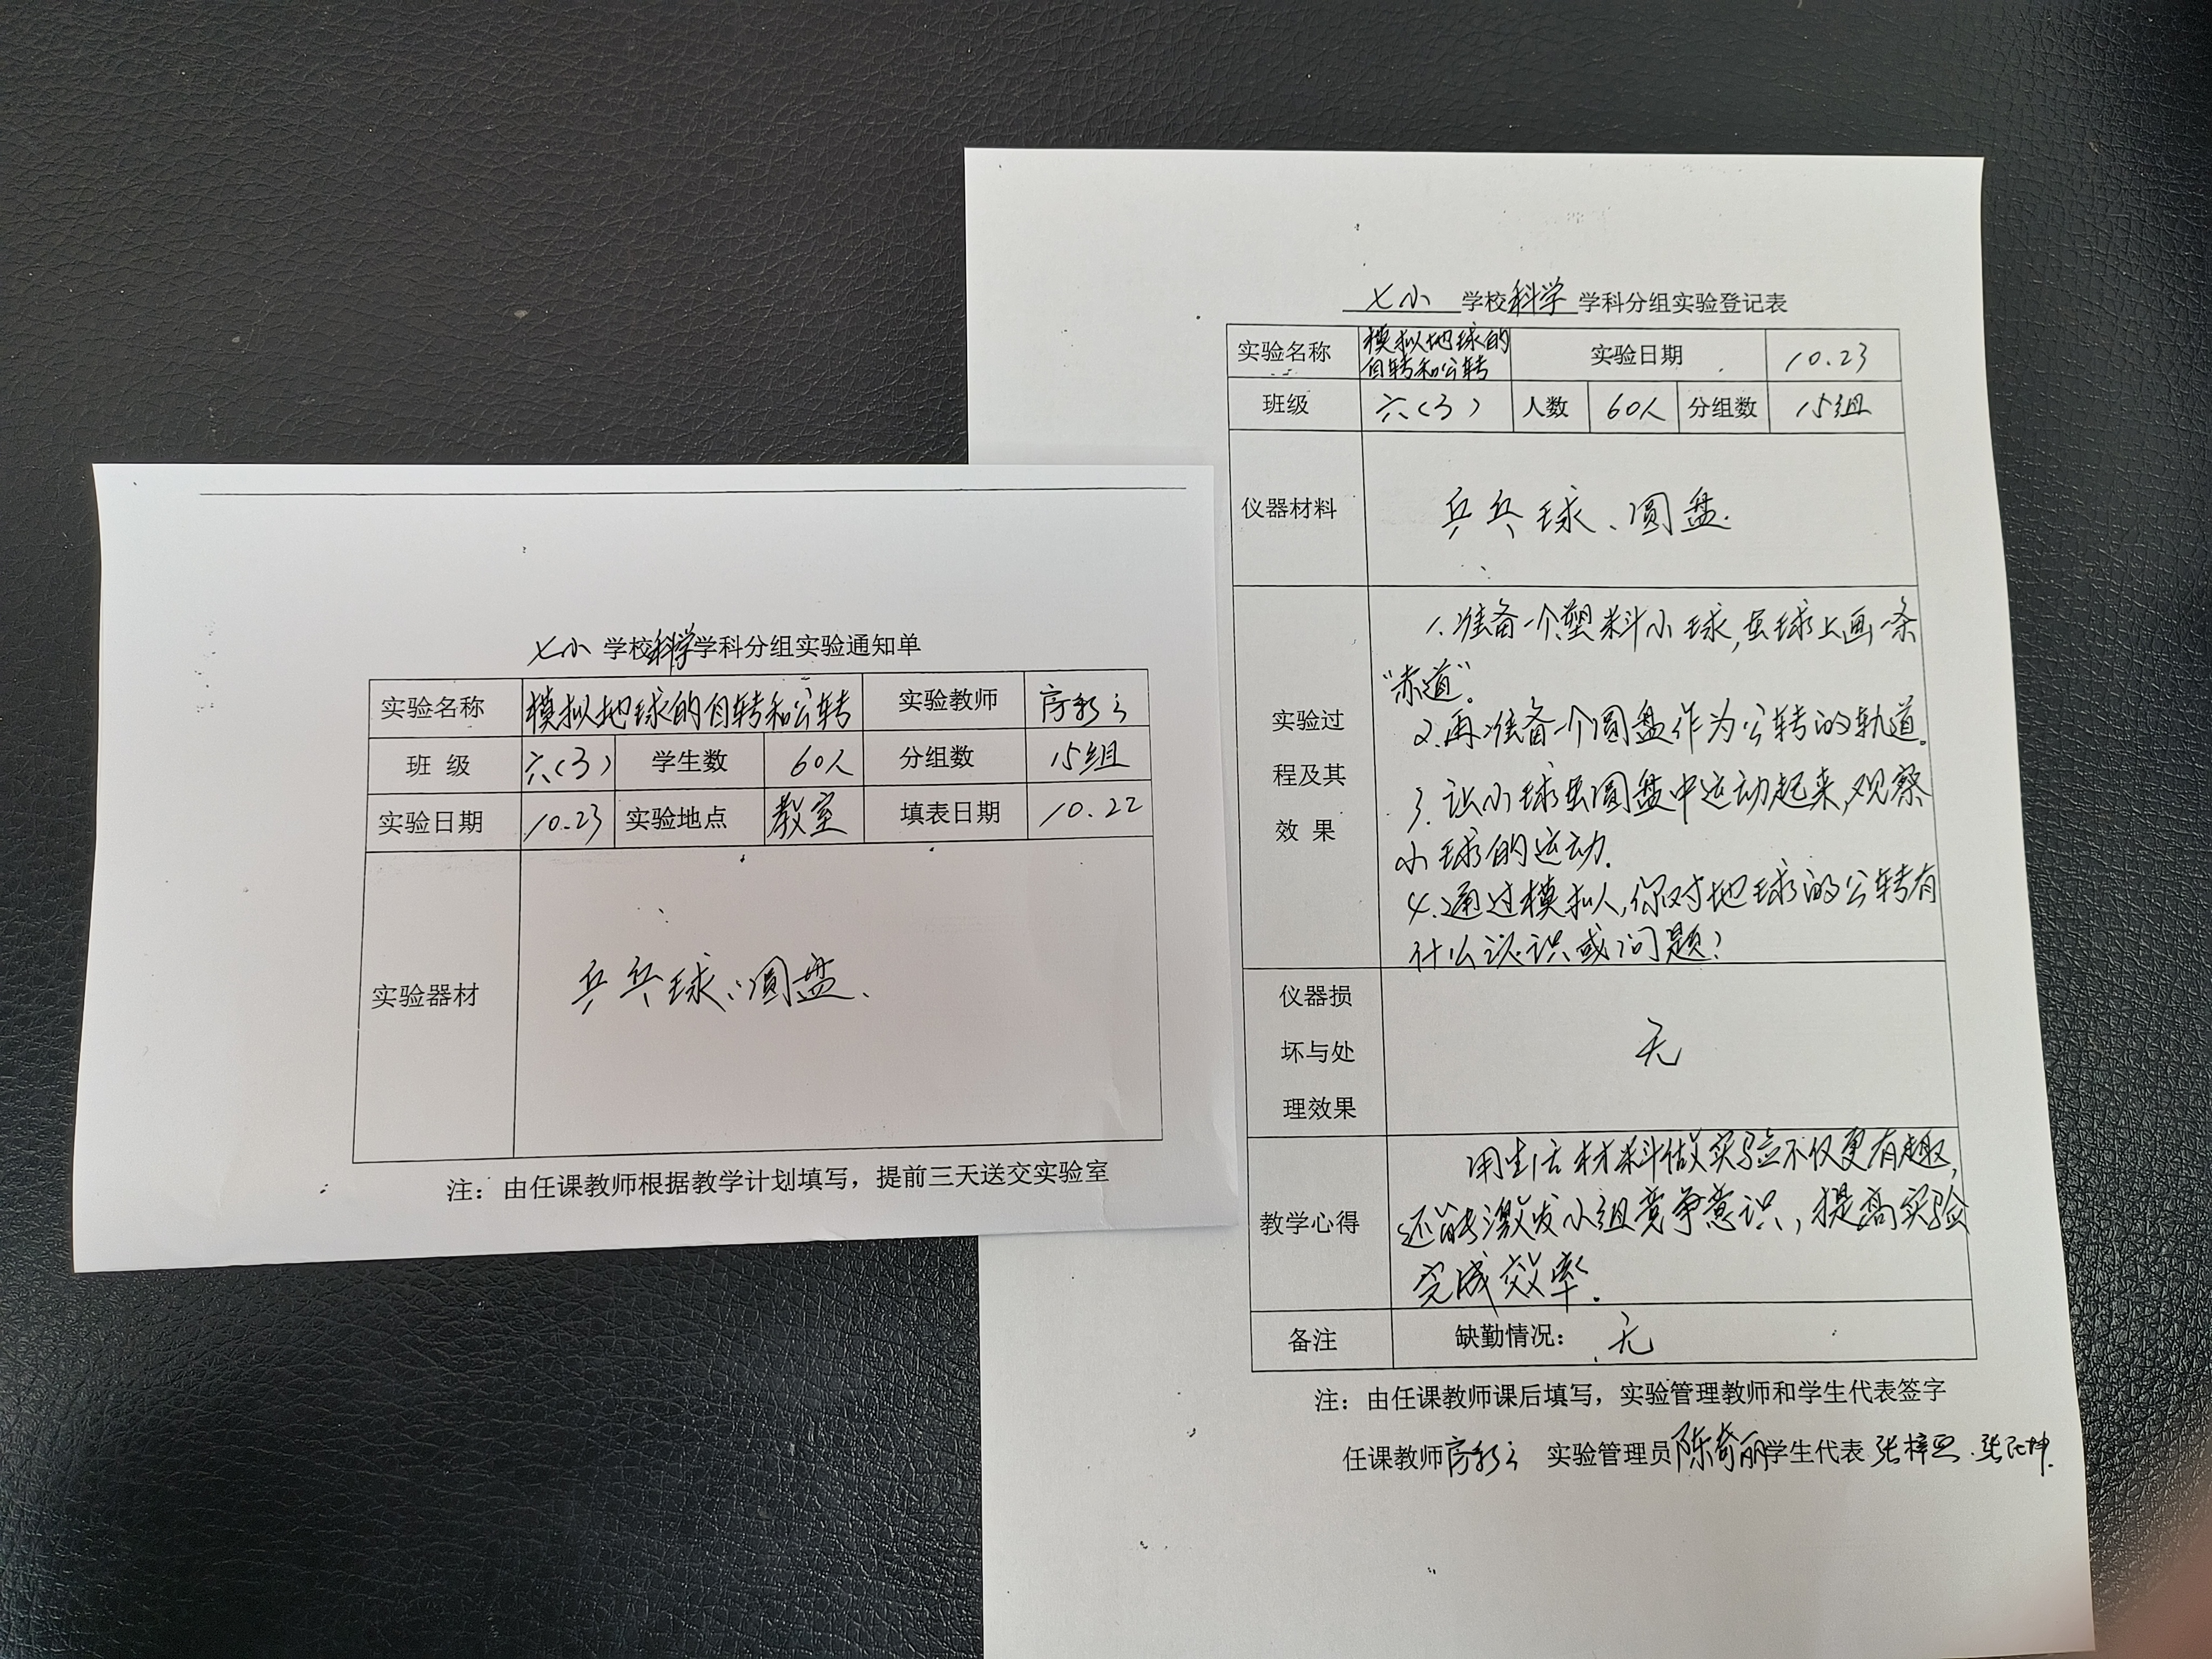 七小 学校科学学科分组实验通知单
实验名称 模拟地球的自转和公转 实验教师
班 级 六(3) 学生数 60人 分组数 15组
实验日期 10.23 实验地点 教室 填表日期 10.22
实验器材 乒乓球、圆盘、
注：由任课教师根据教学计划填写，提前三天送交实验室
七小 学校科学 学科分组实验登记表
实验名称 模拟地球的自转和公转 实验日期 10.23
班级 六(3) 人数 60人 分组数 15组
仪器材料 乒乓球、圆盘.
实验过程及其效 果
1.准备一个塑料小球,在球上画一条
“赤道”。
2.再准备一个圆盘作为公转的轨道。
3.让小球在圆盘中运动起来,观察
小球的运动.
4.通过模拟人,你对地球的公转有
什么认识或问题?
仪器损坏与处理效果 无
教学心得
用生活材料做实验不仅更有趣,
还能激发小组竞争意识，提高实验
完成效率.
备注 缺勤情况： 无
注：由任课教师课后填写，实验管理教师和学生代表签字
任课教师 实验管理员陈奇丽学生代表